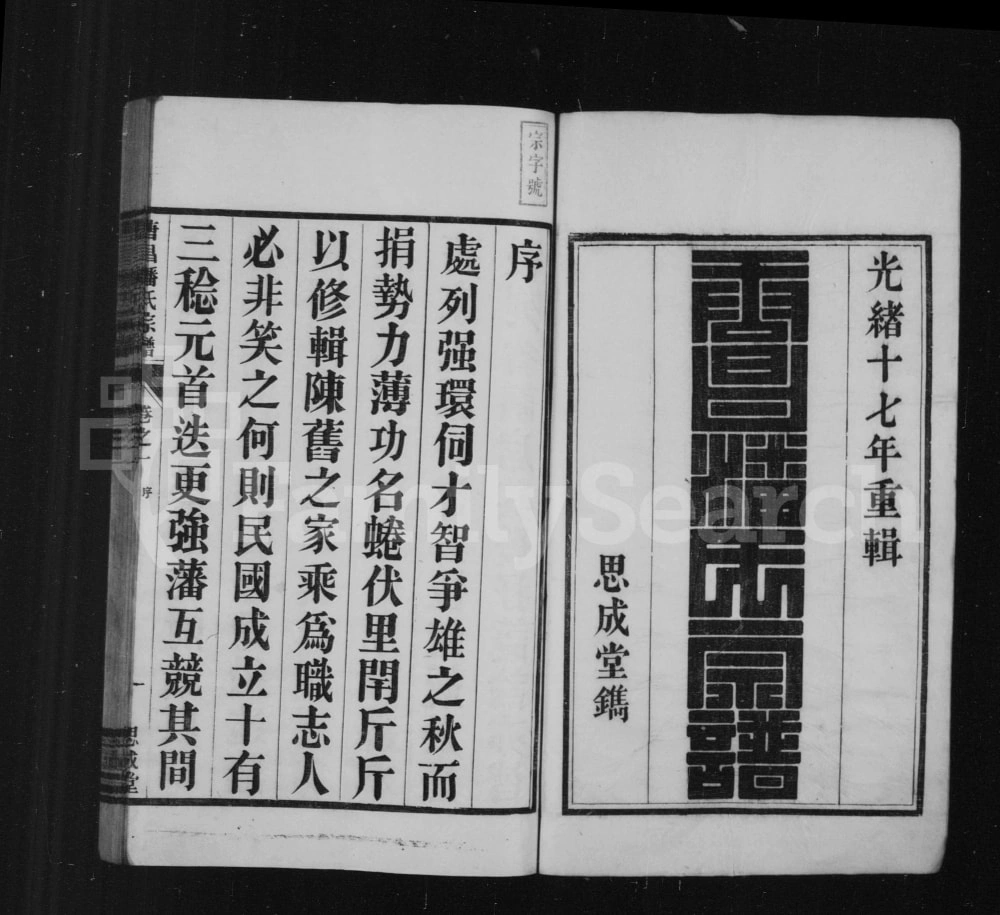 光緒十七年重輯
雲昌潘氏宗譜
思成堂鐫
宗字號
序
處列强環伺才智爭雄之秋而
捐勢力薄功名蜷伏里閈斤斤
以修輯陳舊之家乘爲職志人
必非笑之何則民國成立十有
三稔元首迭更強藩互競其間
昌潘氏宗譜
卷之一
序
一
思成堂
FamilySearch